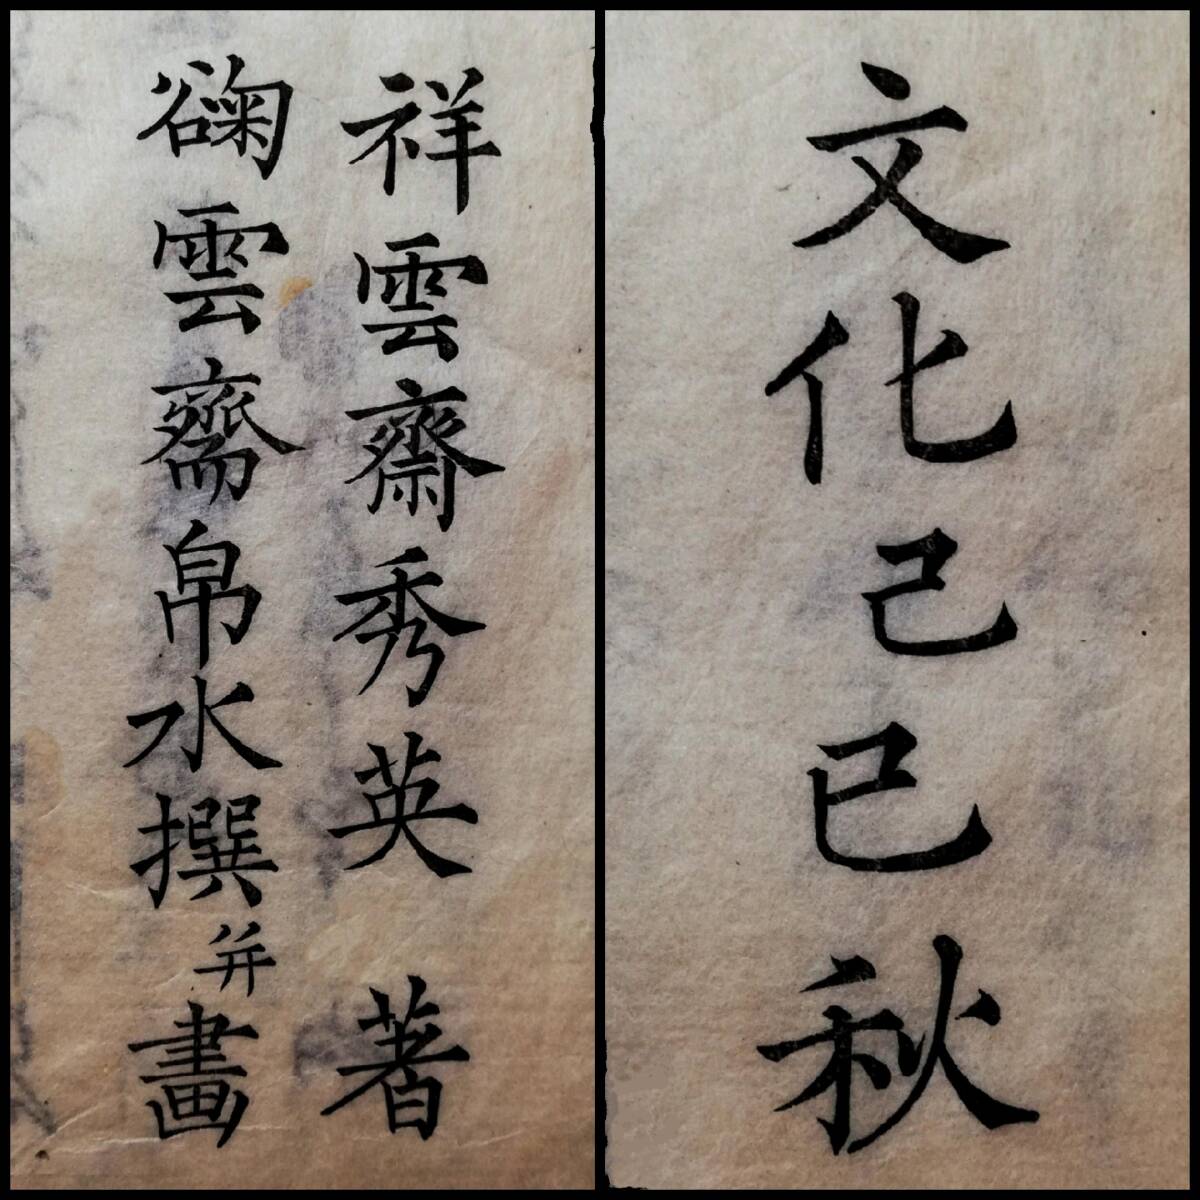 文化己巳秋
祥雲齋秀英 著
雲齋帛水撰并畫